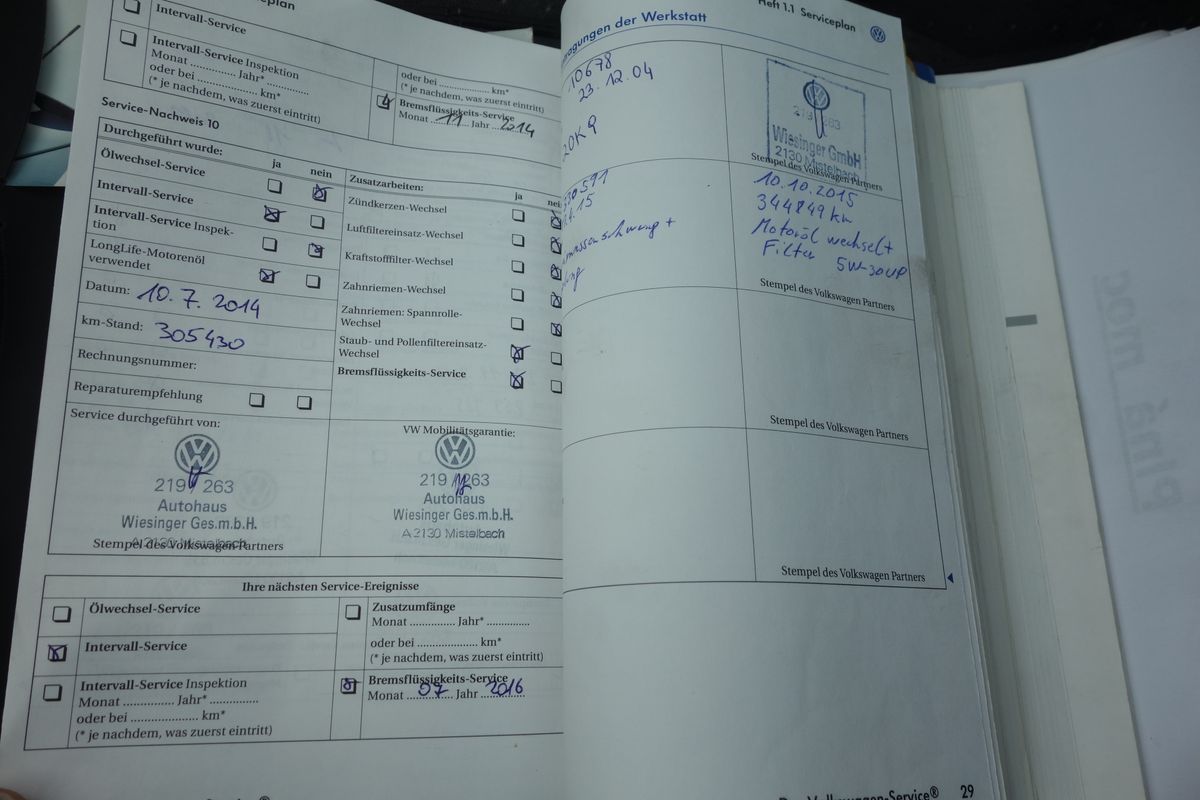 Intervall-Service
Intervall-Service Inspektion
Monat .............. Jahr* ..............
oder bei .................... km*
(* je nachdem, was zuerst eintritt)
oder bei .................... km*
(* je nachdem, was zuerst eintritt)
Bremsflüssigkeits-Service
Monat 11 Jahr 2014
Service-Nachweis 10
Durchgeführt wurde:
ja nein
Ölwechsel-Service
Intervall-Service
Intervall-Service Inspek-
tion
LongLife-Motorenöl
verwendet
Datum: 10. 7. 2014
km-Stand: 305430
Rechnungsnummer:
Reparaturempfehlung
Zusatzarbeiten:
ja
Zündkerzen-Wechsel
Luftfiltereinsatz-Wechsel
Kraftstofffilter-Wechsel
Zahnriemen-Wechsel
Zahnriemen: Spannrolle-
Wechsel
Staub- und Pollenfiltereinsatz-
Wechsel
Bremsflüssigkeits-Service
Service durchgeführt von:
219 263
Autohaus
Wiesinger Ges.m.b.H.
A 2130 Mistelbach
Stempel des Volkswagen Partners
VW Mobilitätsgarantie:
219 263
Autohaus
Wiesinger Ges.m.b.H.
A 2130 Mistelbach
Ihre nächsten Service-Ereignisse
Ölwechsel-Service
Intervall-Service
Intervall-Service Inspektion
Monat .............. Jahr* ..............
oder bei .................... km*
(* je nachdem, was zuerst eintritt)
Zusatzumfänge
Monat .............. Jahr* ..............
oder bei .................... km*
(* je nachdem, was zuerst eintritt)
Bremsflüssigkeits-Service
Monat 07 Jahr 2016
Heft 1.1 Serviceplan
der Werkstatt
10678
23.12.04
Wiesinger GmbH
2130 Mistelbach
Stempel des Volkswagen Partners
10.10.2015
344849 km
Motoröl wechsel+
Filter 5W-30
Stempel des Volkswagen Partners
Stempel des Volkswagen Partners
Stempel des Volkswagen Partners
29